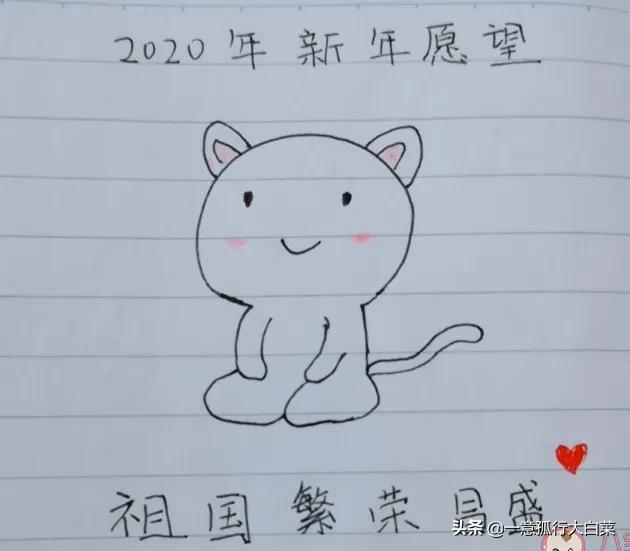 2020年新年愿望
祖国繁荣昌盛
头条 @一意孤行大白菜